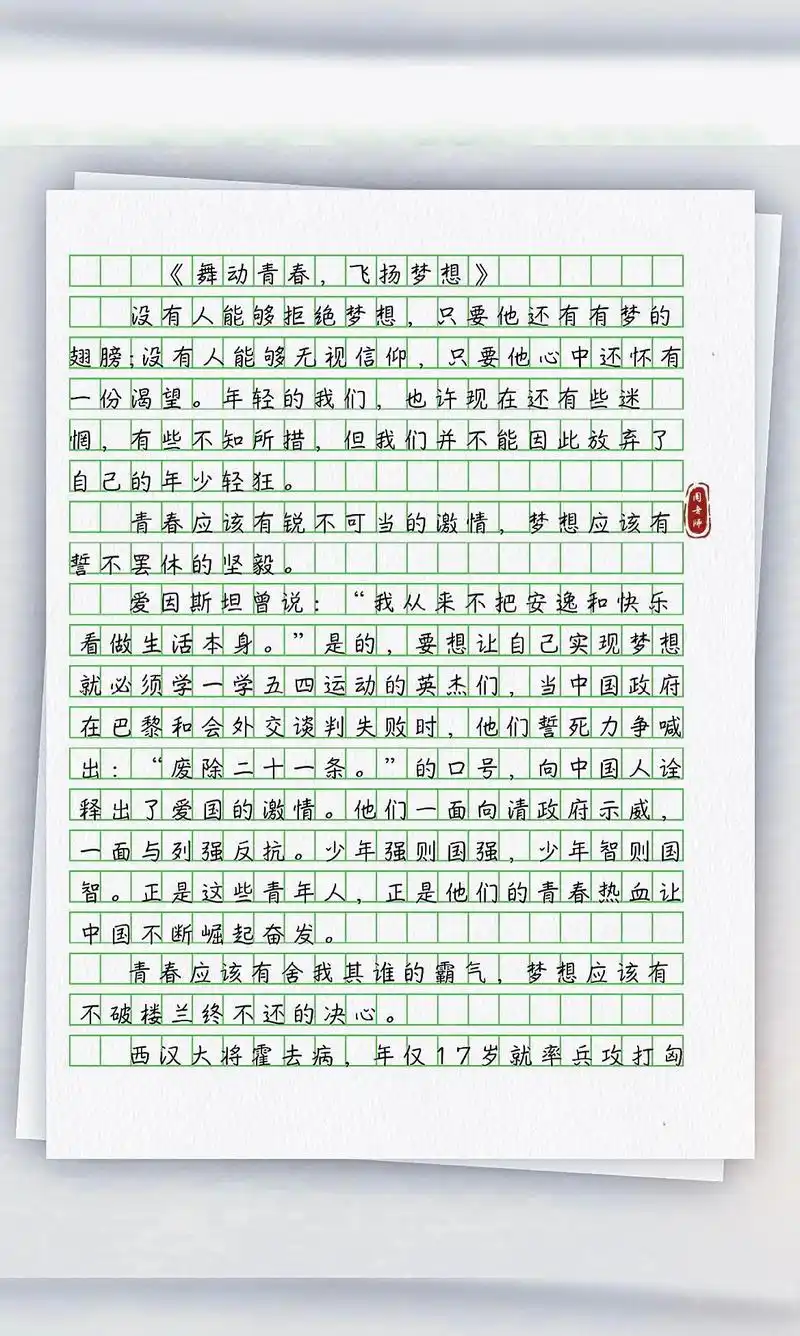 《舞动青春，飞扬梦想》
没有人能够拒绝梦想，只要他还有有梦的
翅膀;没有人能够无视信仰，只要他心中还怀有
一份渴望。年轻的我们，也许现在还有些迷
惘，有些不知所措，但我们并不能因此放弃了
自己的年少轻狂。
青春应该有锐不可当的激情，梦想应该有
誓不罢休的坚毅。
爱因斯坦曾说：“我从来不把安逸和快乐
看做生活本身。”是的，要想让自己实现梦想
就必须学一学五四运动的英杰们，当中国政府
在巴黎和会外交谈判失败时，他们誓死力争喊
出：“废除二十一条。”的口号，向中国人诠
释出了爱国的激情。他们一面向清政府示威，
一面与列强反抗。少年强则国强，少年智则国
智。正是这些青年人，正是他们的青春热血让
中国不断崛起奋发。
青春应该有舍我其谁的霸气，梦想应该有
不破楼兰终不还的决心。
西汉大将霍去病，年仅17岁就率兵攻打匈
周老师